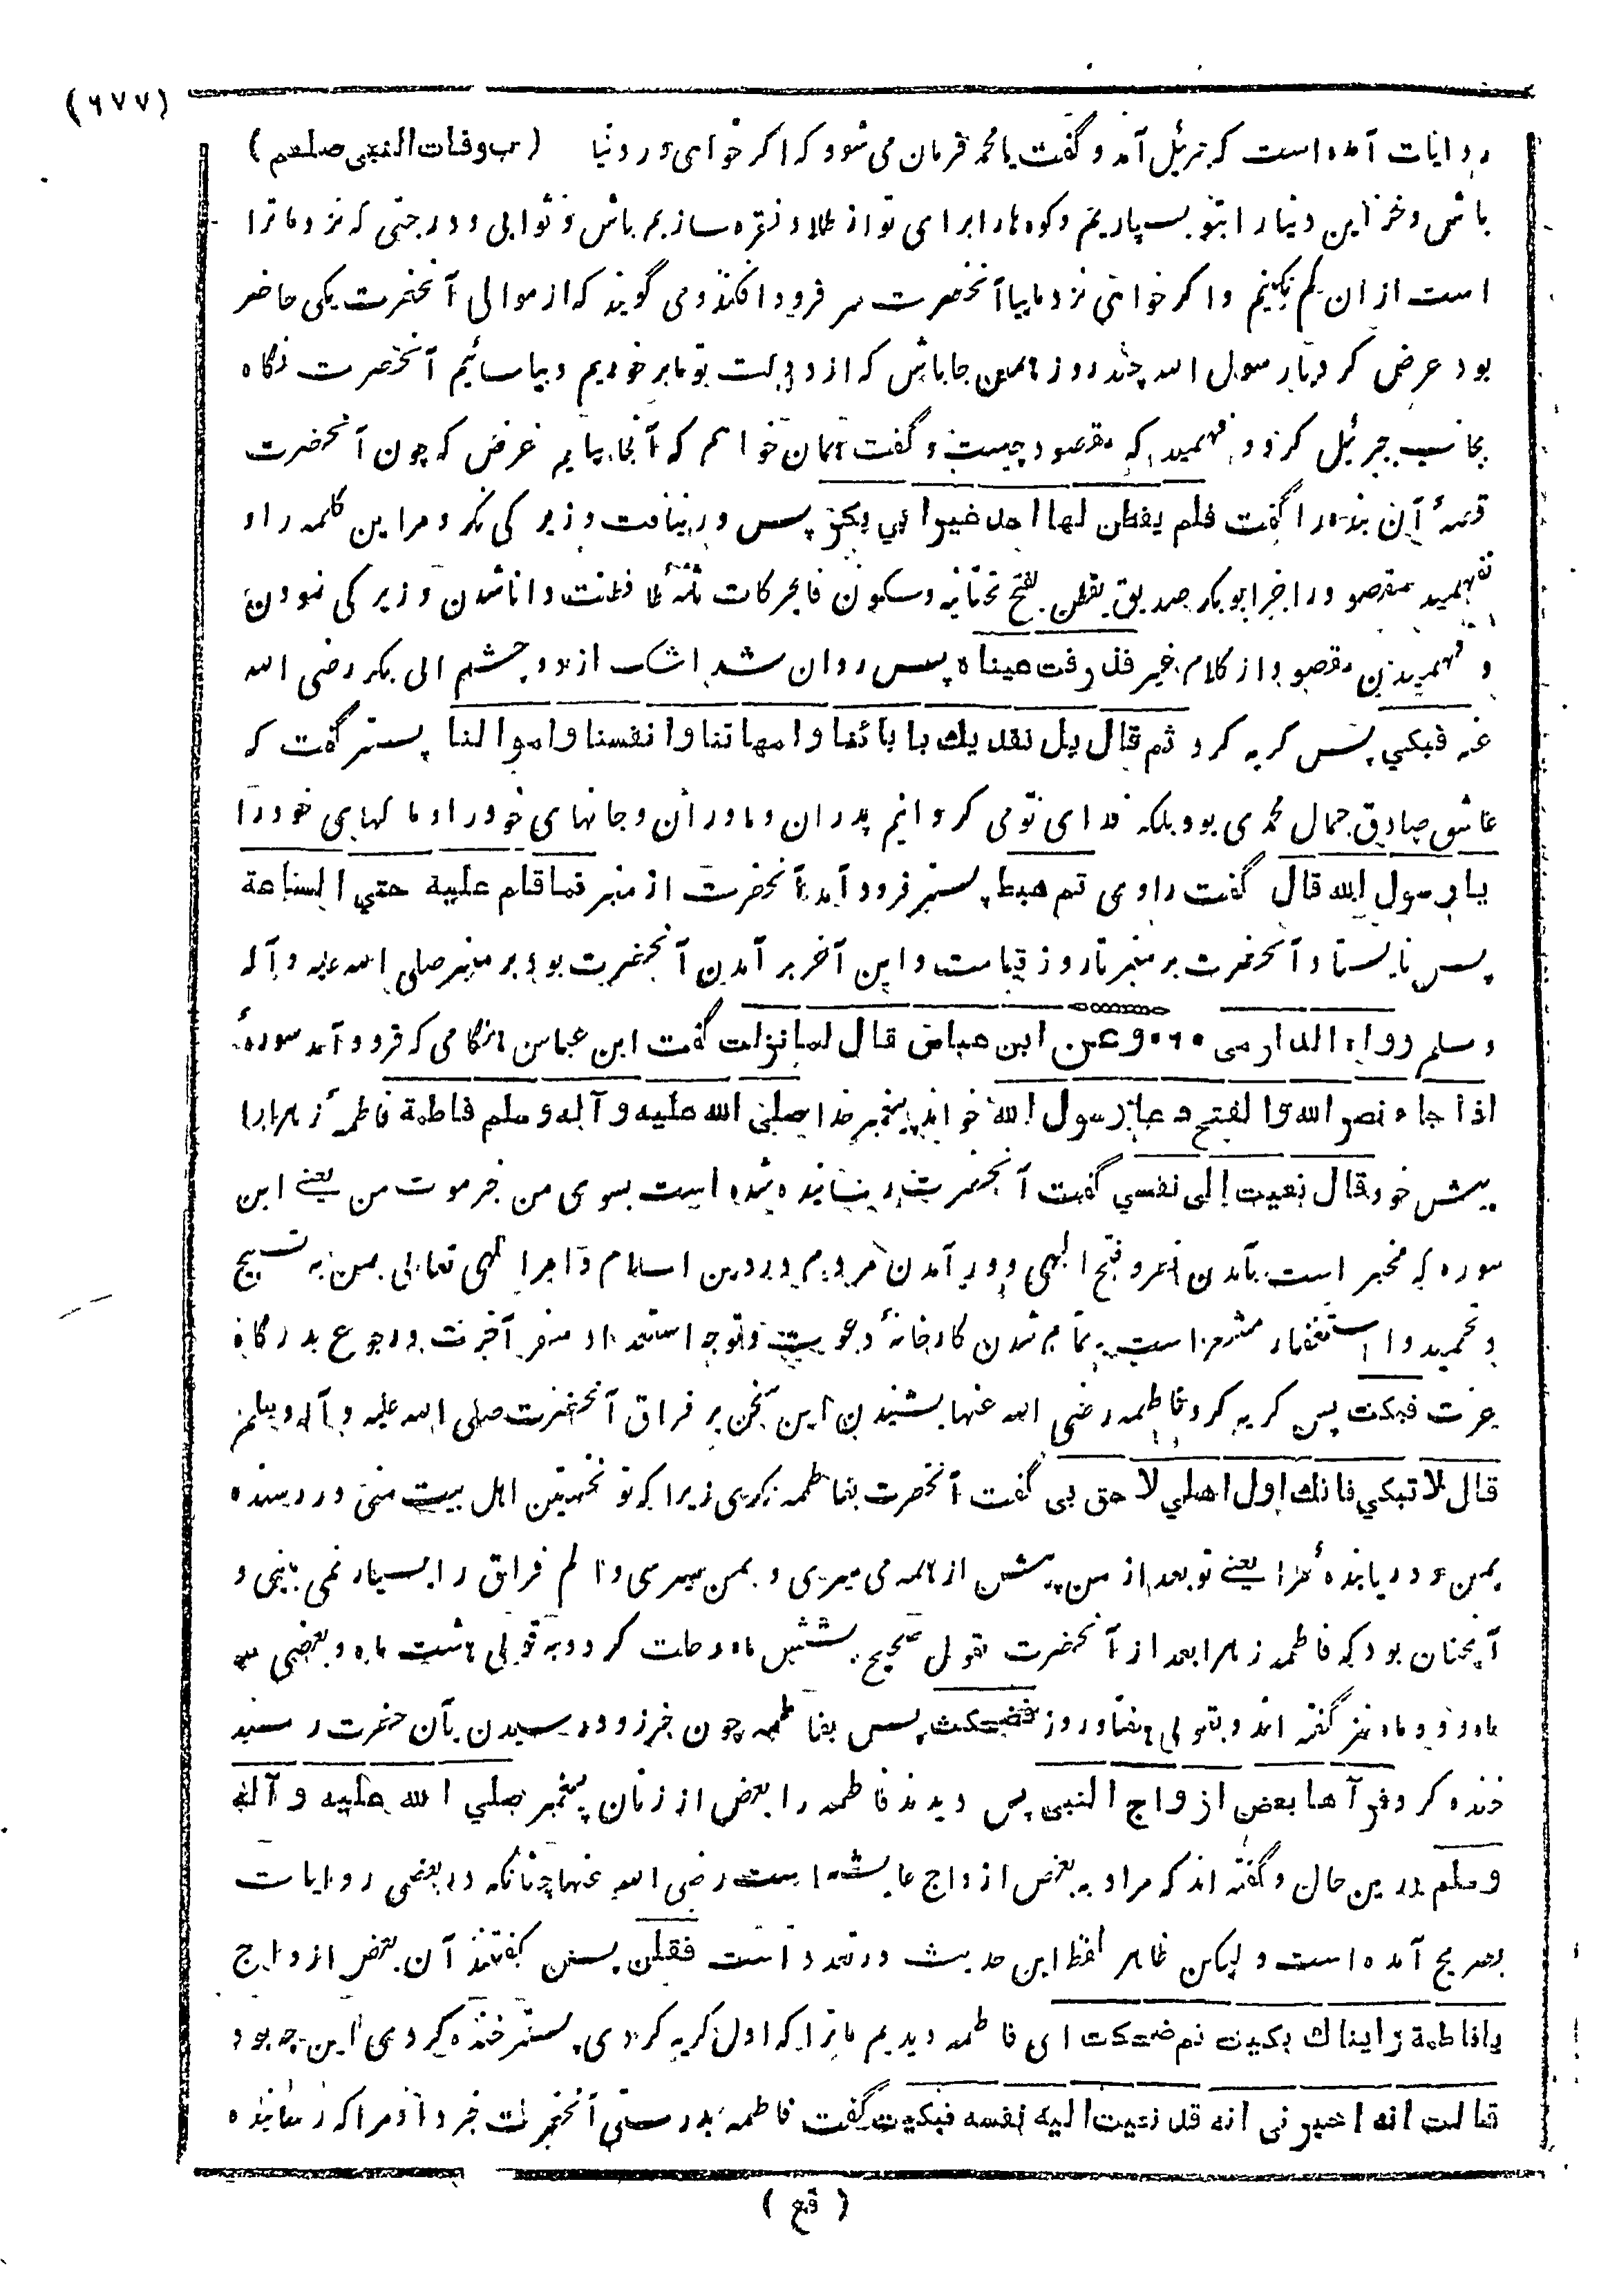 (٦٧٧)
روایات آمده است که جبرئیل آمد و گفت یا محمد فرمان می شود که اگر خواهی در دنیا (ب وفات النبی صلعم)
باش و خزاین دنیا را بتو بسپاریم و کوه ها را برای تو از طلا و نقره سازیم باش و ثوابی و درجتی که نزد ما ترا
است از ان کم نکنیم و اگر خواهی نزد ما بیا آنحضرت سر فرود افکند و می گویند که از موالی آنحضرت یکی حاضر
بود عرض کرد یا رسول الله چند روز همین جا باش که از دولت تو ما برخوریم و بیاسائیم آنحضرت نگاه
بجانب جبرئیل کرد و فهمید که مقصود چیست و گفت همان خواهم که آنجا بیایم غرض که چون آنحضرت
قصهٔ آن بنده را گفت فلم یفطن لها احد غیر ابي بکر پس در نیافت و زیرکی نکرد مر این کلمه را و
نفهمید مقصود را جز ابو بکر صدیق یفطن بفتح تحتانیه و سکون فا بحرکات ثلثه طا فطنت دانا شدن و زیرکی نمودن
و فهمیدن مقصود از کلام غیر فذرفت عیناه پس روان شد اشک از دو چشم ابی بکر رضی الله
عنه فبکي پس گریه کرد ثم قال بل نفدیك بابائنا وامهاتنا وانفسنا واموالنا پستر گفت که
عاشق صادق جمال محمدی بود بلکه فدای تو می گردانیم پدران و مادران و جانهای خود را و مالهای خود را
یا رسول الله قال گفت راوی ثم هبط پستر فرود آمد آنحضرت از منبر فما قام علیه حتي الساعة
پس نایستاد آنحضرت بر منبر تا روز قیامت و این آخر بر آمدن آنحضرت بود بر منبر صلی الله علیه و آله
و سلم رواه الدارمی ٠٦٠ وعن ابن عباس قال لما نزلت گفت ابن عباس هنگامی که فرود آمد سورهٔ
اذا جاء نصر الله والفتح دعا رسول الله خواند پیغمبر خدا صلی الله علیه وآله وسلم فاطمة فاطمهٔ زهرا را
پیش خود قال نعیت إلی نفسي گفت آنحضرت رسانیده شده است بسوی من خبر موت من یعنے این
سوره که مخبر است بآمدن نصر و فتح الهی و در آمدن مردم در دین اسلام و امر الهی تعالی بمن به تسبیح
و تحمید و استغفار مشعر است بتمام شدن کارخانهٔ دعوت و توجه استعداد سفر آخرت و رجوع بدرگاه
عزت فبکت پس گریه کرد فاطمه رضی الله عنها بشنیدن این سخن بر فراق آنحضرت صلی الله علیه و آله و سلم
قال لا تبکي فانك اول اهلي لاحق بی گفت آنحضرت بفاطمه نگری زیرا که تو نخستین اهل بیت منی در رسنده
بمن و دریابنده مرا یعنے تو بعد از من پیش از همه می میری و بمن میرسی و الم فراق را بسیار نمی بینی و
آنچنان بود که فاطمه زهرا بعد از آنحضرت بقول صحیح بشش ماه رحلت کرد و به قولی هشت ماه و بعضی سه
ماه و دو ماه نیز گفته اند و بقولی هفتاد روز فضحکت پس بفاطمه چون خبر زود رسیدن بآن حضرت رسید
خنده کرد فرآها بعض ازواج النبی پس دیدند فاطمه را بعض از زنان پیغمبر صلي الله علیه وآله
وسلم درین حال و گفته اند که مراد به بعض ازواج عایشه است رضی الله عنها چنانکه در بعضی روایات
بصریح آمده است و لیکن ظاهر لفظ این حدیث در تعدد است فقلن پس گفتند آن بعض ازواج
یا فاطمة رایناك بکیت ثم ضحکت ای فاطمه دیدیم ما ترا که اول گریه کردی پستر خنده کردی این چه بود
قالت انه اخبرنی انه قد نعیت الیه نفسه فبکیت گفت فاطمه بدرستی آنحضرت خبر داد مرا که رسانیده
(قع)